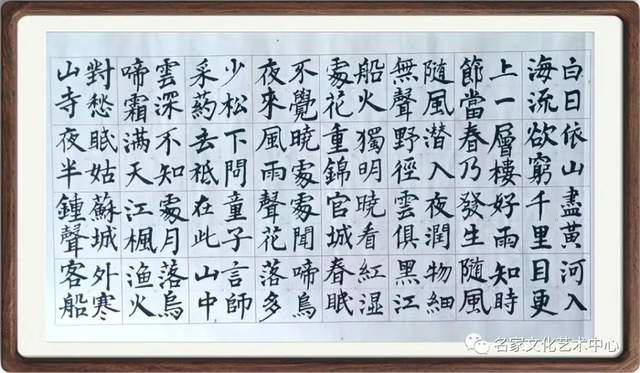 白日依山盡黄河入
海流欲窮千里目更
上一層樓好雨知時
節當春乃發生随風
随風潜入夜潤物細
無聲野徑雲俱黑江
船火獨明曉看紅湿
處花重錦官城春眠
不覺曉處處聞啼鳥
夜來風雨聲花落多
少松下問童子言師
采葯去祗在此山中
雲深不知處月落烏
啼霜滿天江楓渔火
對愁眠姑蘇城外寒
山寺夜半鍾聲客船
名家文化艺术中心